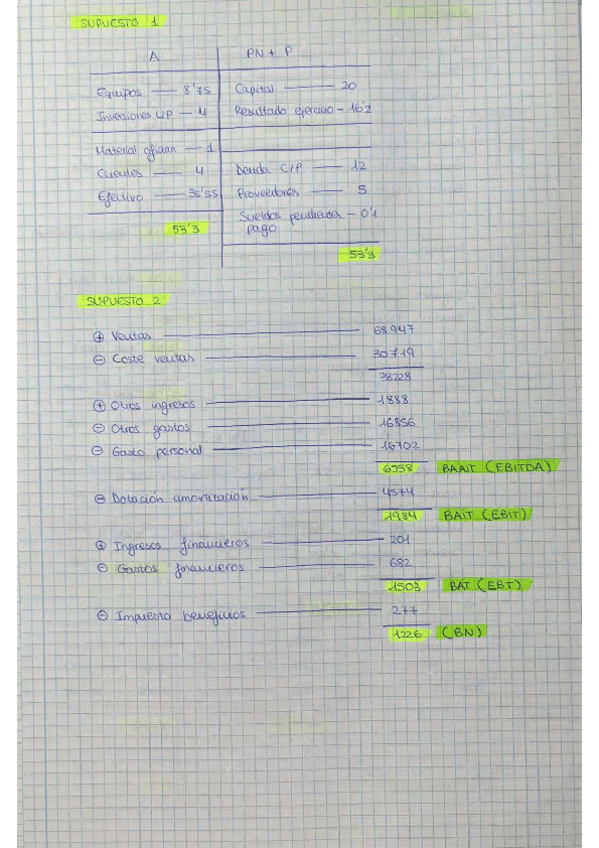 SUPUESTO 1
A PN + P
Equipos — 8'75 Capital — 20
Inversiones L/P — 4 Resultado ejercicio — 16'2
Material oficina — 1
Clientes — 4 Deuda C/P — 12
Efectivo — 35'55 Proveedores — 5
53'3 Sueldos pendientes — 0'1
pago
53'3
SUPUESTO 2
+ Ventas — 68947
- Coste ventas — 30719
38228
+ Otros ingresos — 1888
- Otros gastos — 16856
- Gasto personal — 16702
6558 BAAIT (EBITDA)
- Dotación amortización — 4574
1984 BAIT (EBIT)
+ Ingresos financieros — 201
- Gastos financieros — 682
1503 BAT (EBT)
- Impuesto beneficios — 277
1226 (BN)